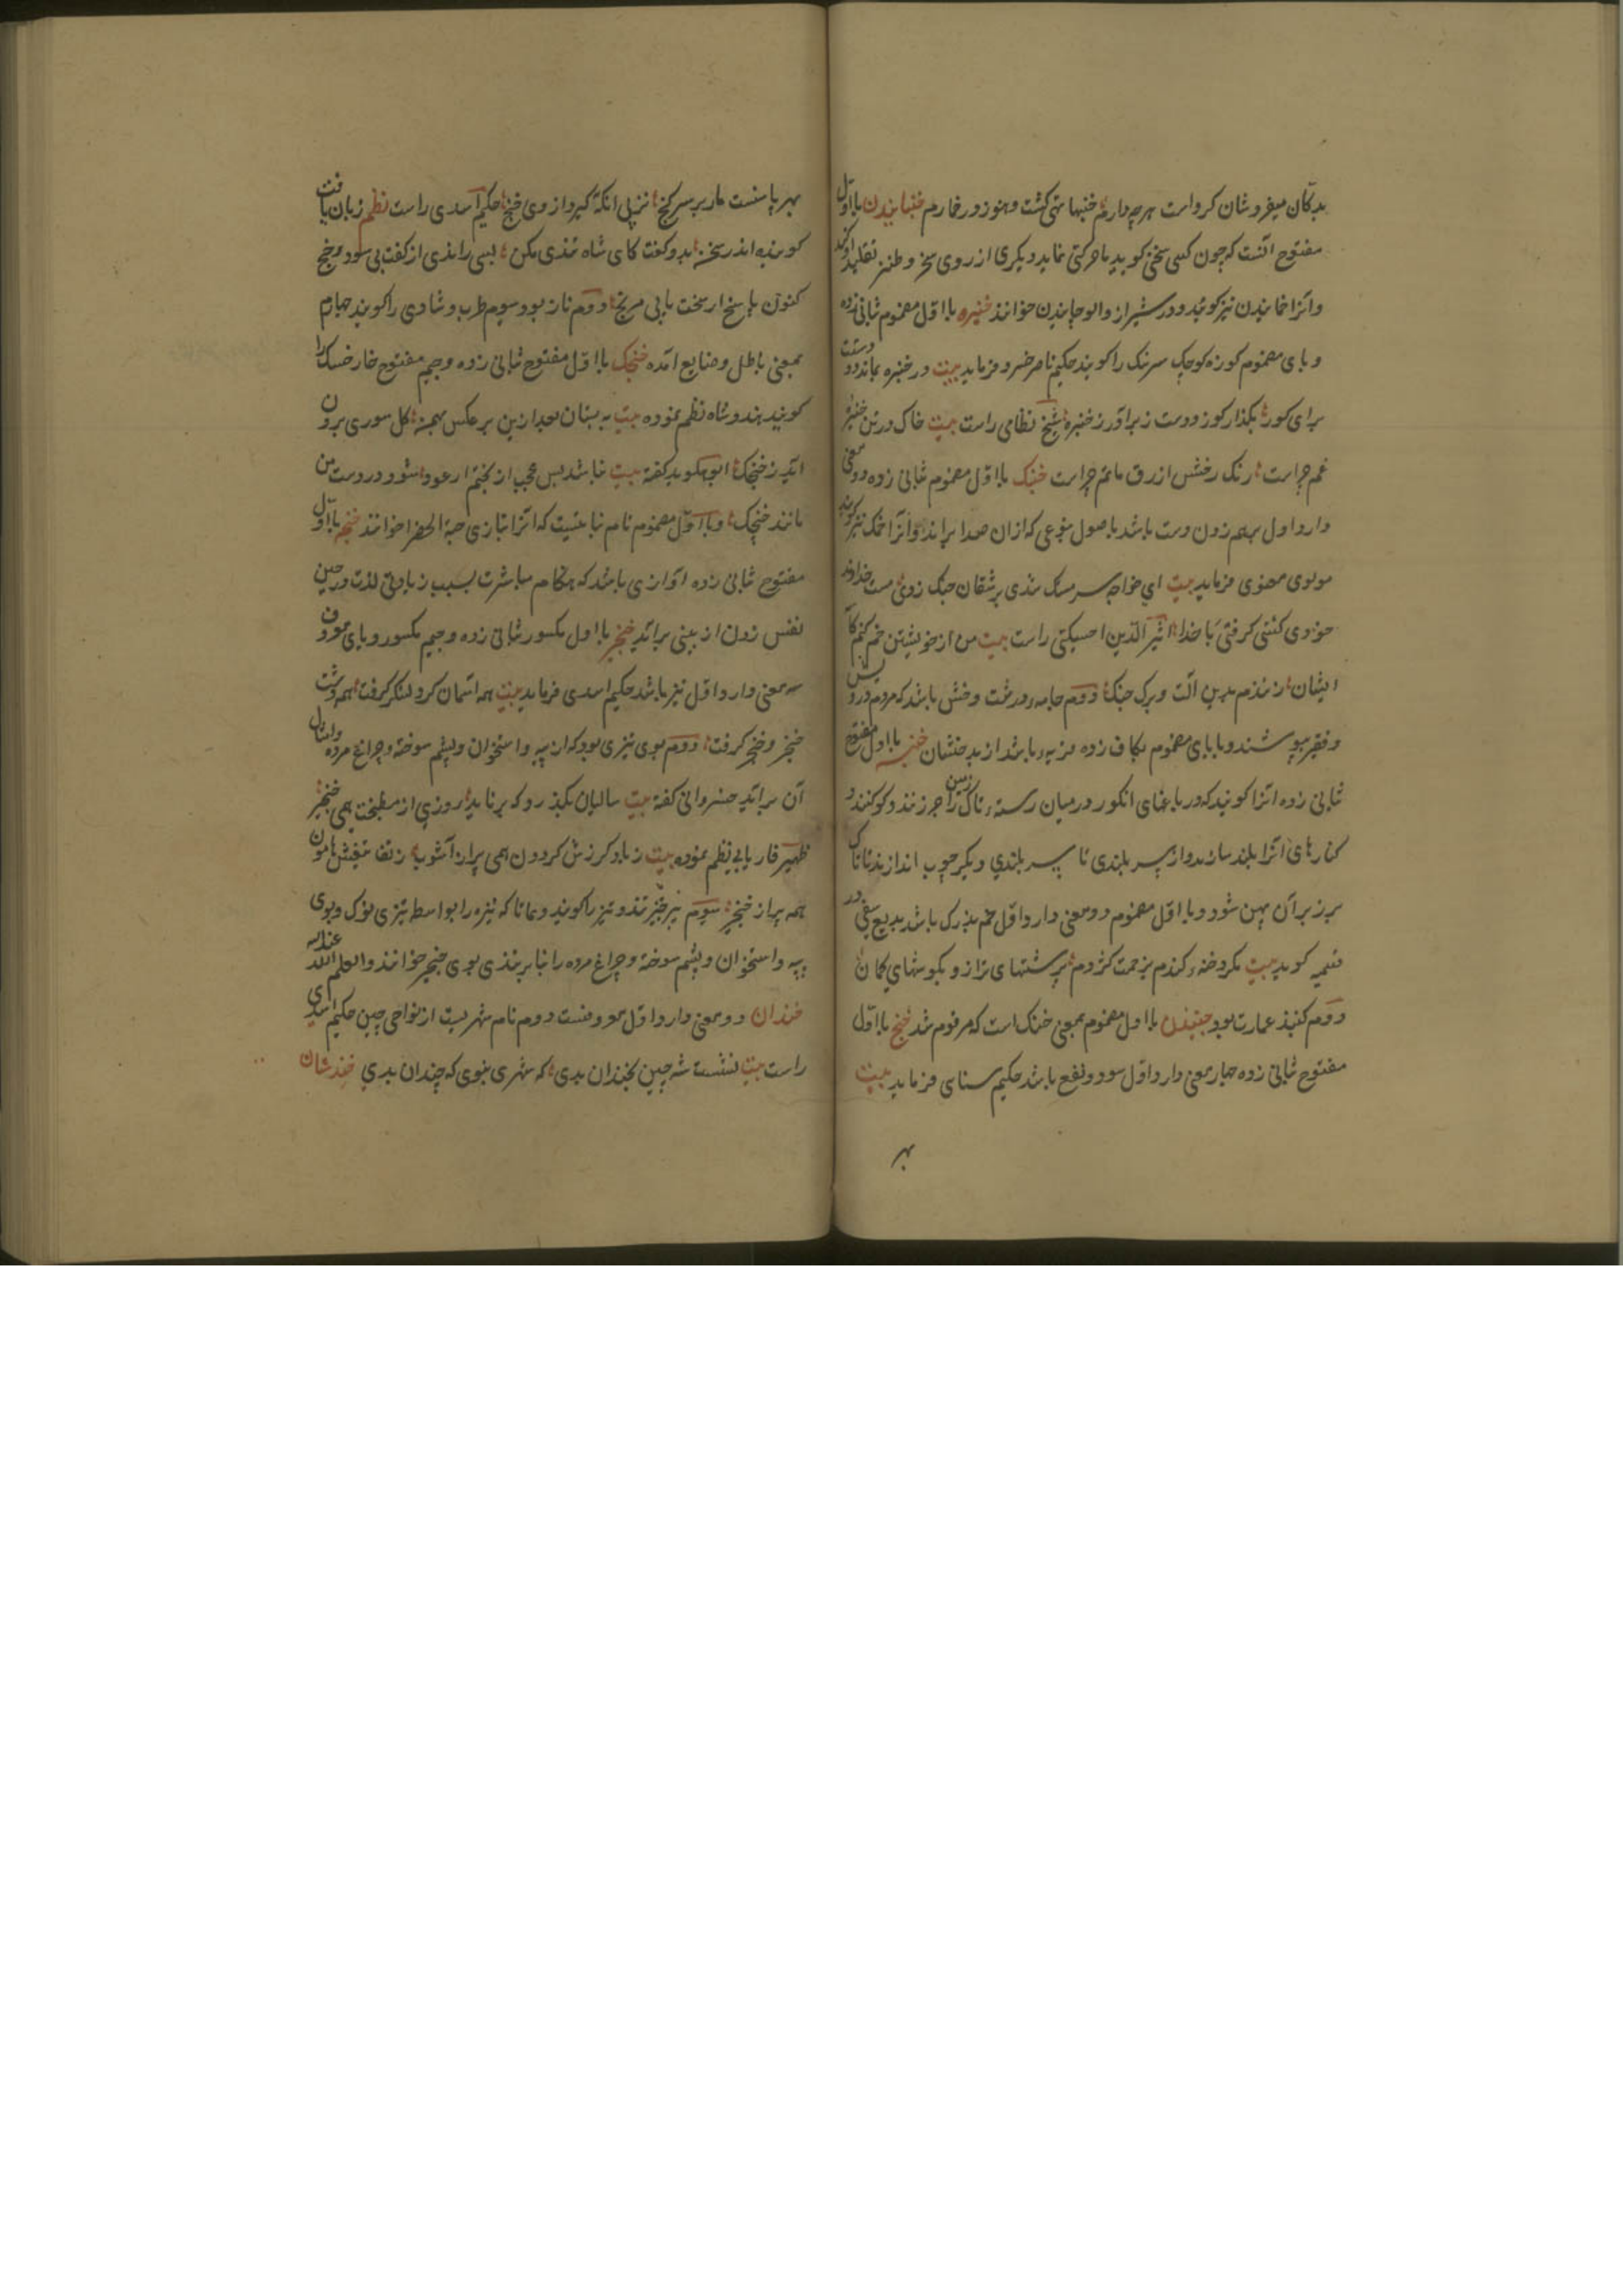 بدکان میفروشان کرو است هرچه دارم خنبها تهی کشت و هنوز در خمارم خنبانیدن با اول
مفتوح آنست که چون کسی سخنی کوید یا حرکتی نماید دیکری از روی سخر و طنز تقلید او کند
و آنرا خمانیدن نیز کویند و در شیراز والوچانیدن خوانند خنبره با اول مضموم ثانی زده
و بای مضموم کوزه کوچک سر تنک را کویند حکیم ناصر خسرو فرماید بیت در خنبره بماند دو دستت
برای کوز بکذار کوز و دست برآور ز خنبره شیخ نظامی راست بیت خاک درین خنبره
غم چراست رنک رخش ازرق ماتم چراست خنبک با اول مضموم ثانی زده دو معنی
دارد اول برهم زدن دست باشد باصول بنوعی که ازان صدا براید و آنرا خمک نیز کویند
مولوی معنوی فرماید بیت ای خواجه سرمستک شدی بر عاشقان خنبک زدی مست خداوند
خودی کشتی کرفتی با خدا اثیر الدین اخسیکتی راست بیت من از خویشتن خم کنم
ایشان زنندم بدین آلت و برک خنبک دوم جامه درشت و خشن باشد که مردم درویش
و فقیر پوشند و با بای مضموم بکاف زده قریه باشد از بدخشان خنبه با اول مفتوح
ثانی زده آنرا کویند که در باغهای انکور در میان رسته تاک زمین را جر زنند و کو کنند و
کنارهای آنرا بلند سازند و از سر بلندی تا سر بلندی دیکر چوب اندازند تا تاک
بر زبر آن پهن شود و با اول مضموم دو معنی دارد اول خم بزرک باشد بدیع سیفی در
قسمیه کوید بیت بکرد خنبه کندم بزحمت کژدم بر شتهای ترازو بکوشهای کمان
دوم کنبد عمارت بود خنبیدن با اول مضموم بمعنی خنبک است که مرقوم شد خنج با اول
مفتوح ثانی زده چهار معنی دارد اول سود و نفع باشد حکیم سنای فرماید بیت
بهر
بهر پاسست مار بر سر کنج نز پی آنکه کیرد از وی خنج حکیم اسدی راست نظم زبان یافت
کوینده اندر سخن بدو کفت کای شاه تندی مکن بسی راندی از کفت بی سود و خنج
کنون پاسخ ار سخت یابی مرنج دوم ناز بود سوم طرب و شادی را کویند چهارم
بمعنی باطل و ضایع آمده خنجک با اول مفتوح ثانی زده و جیم مفتوح خار خسک را
کویند هندوشاه نظم نموده بیت به بستان بعد ازین بر عکس بهمن کل سوری برون
آید ز خنجک کفته بیت نباشد بس عجب از بختم ار عود شود در دست من
مانند خنجک و با اول مضموم نام نباتیست که آنرا بتازی حبة الخضرا خوانند خنجه با اول
مفتوح ثانی زده آوازی باشد که هنکام مباشرت بسبب زیادتی لذت و در حین
نفس زدن از بینی براید خنجیر با اول مکسور ثانی زده و جیم مکسور و یای معروف
سه معنی دارد اول نیز باشد حکیم اسدی فرماید بیت همه آسمان کرد لشکر کرفت همه دشت
خنجر و خنجر کرفت دوم بوی تیزی بود که از پیه و استخوان و پشم سوخته و چراغ مرده و امثال
آن براید خسروانی کفته بیت سالیان بکذرد که برناید روزی از مطبخت همی خنجیر
ظهیر فاریابی نظم نموده بیت ز باد کرزش کردون همی پر از آشوب ز تف تیغش هامون
همه پر از خنجیر سوم هر چیز تند و تیز را کویند و همانا که نیزه را بواسطه تیزی نوک و بوی
پیه و استخوان و پشم سوخته و چراغ مرده را بنابر تندی بوی خنجیر خوانند و العلم عند الله
خندان دو معنی دارد اول معروفست دوم نام شهریست از نواحی چین حکیم اسدی
راست بیت نشست شه چین بخندان بدی که شهری نبوی که چندان بدی خندشان